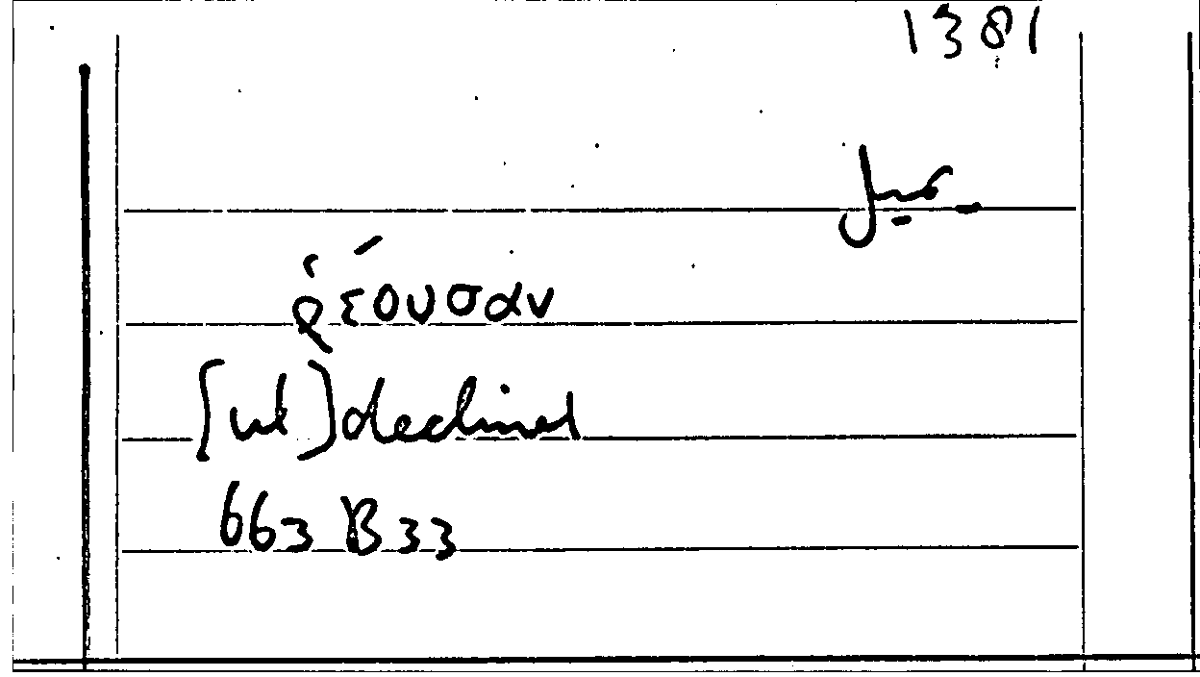 1381
ῥέουσαν
[ut] declined
663 B 33